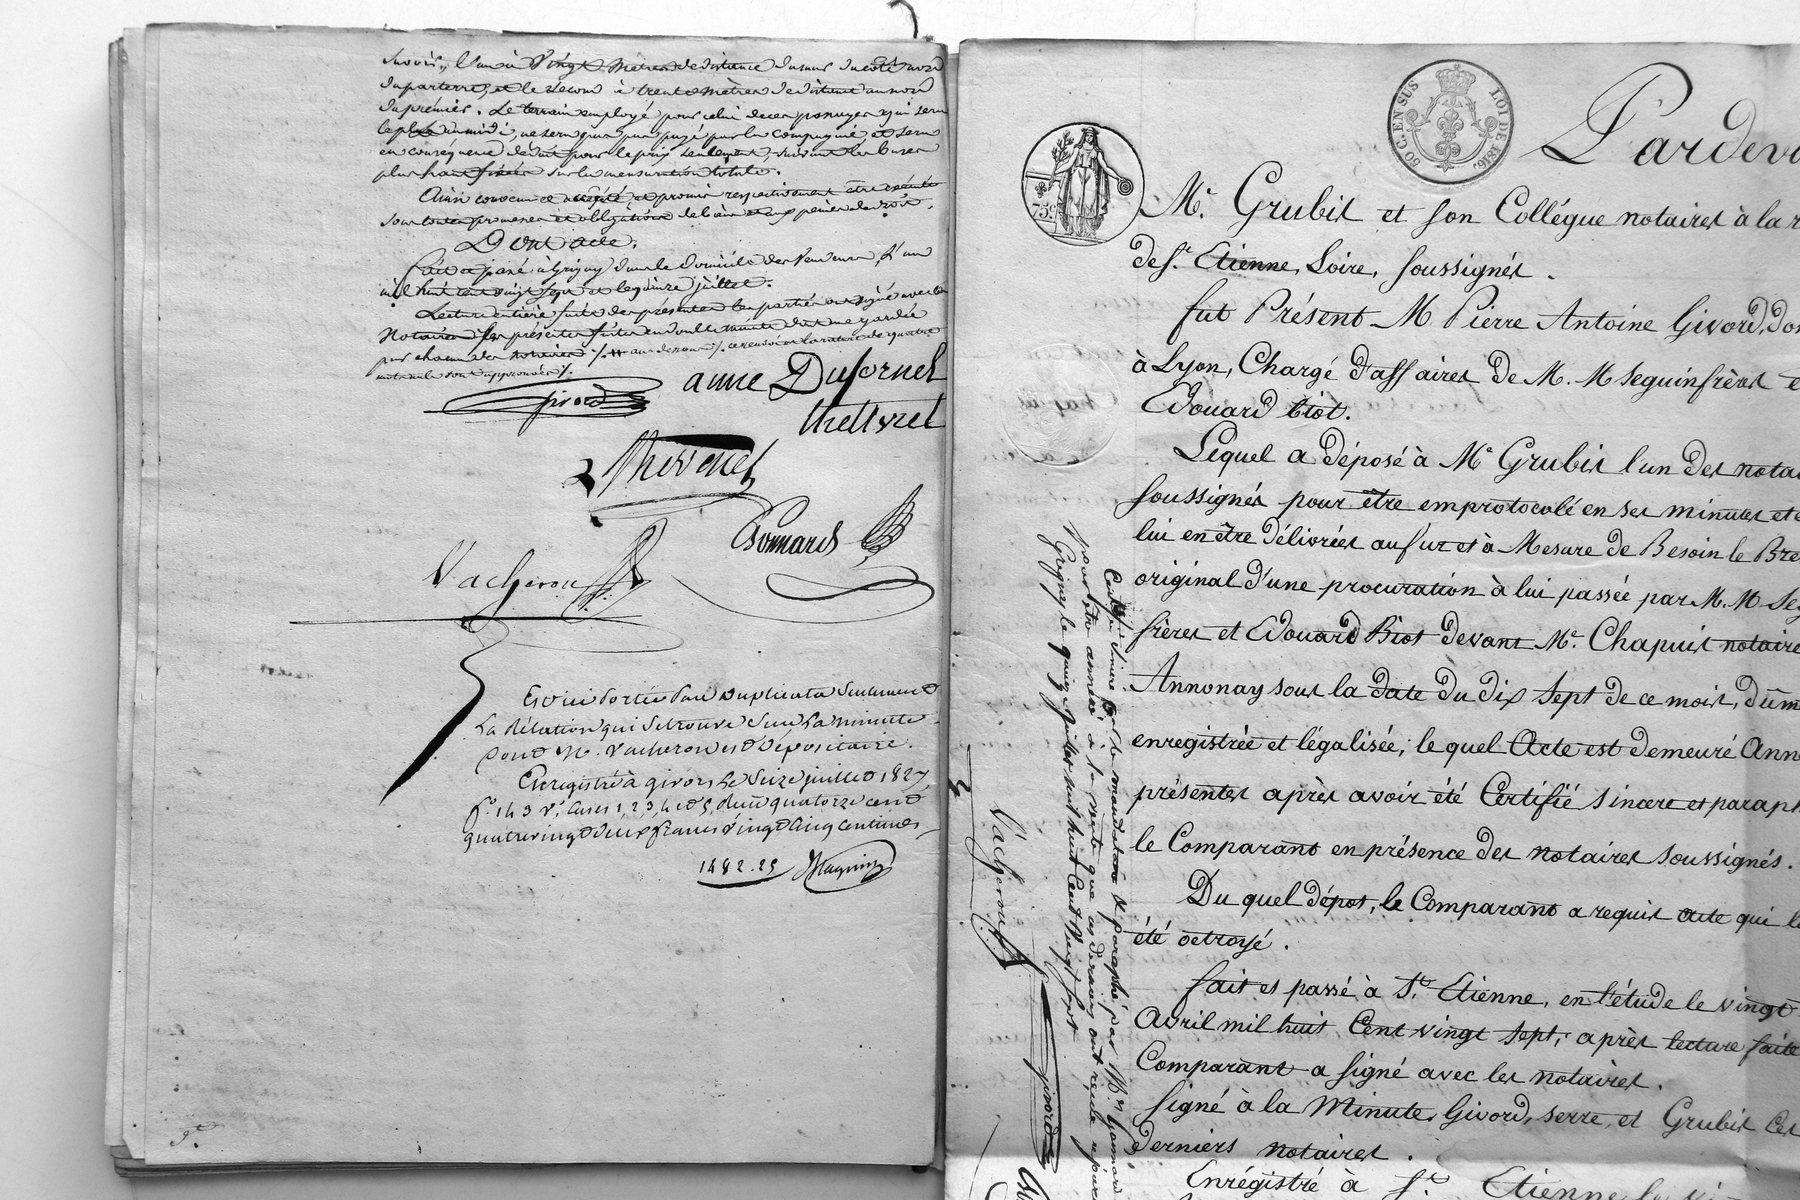 savoir, l'un à vingt mètres de distance du mur du côté nord
du parterre, et le second à trente mètres de distance au nord
du premier. Le terrain employé pour celui de ces passages qui sera
le plus au midi, ne sera pas payé par la Compagnie et sera
en conséquence déduit pour le prix seulement, suivant les bases
plus haut fixées sur la mensuration totale.
Ainsi convenu accepté, et promis respectivement être exécuté
sous toutes promesses et obligations de biens et aux peines de droit.
Dont acte.
fait et passé à Grigny dans le domicile des vendeurs, l'an
mil huit cent vingt sept et le quinze juillet.
Lecture entière faite des présentes les parties ont signé avec les
Notaires les présentes faites en double minute dont une gardée
par chacun des notaires
mots nuls sont approuvés
givord
anne Dufornel
thevenet
Bonnard
Vacheron
Est ici portée par duplicata seulement
la Rélation qui se trouve sur la minute
dont Me. Vacheron est dépositaire.
Enregistré à givors le Seize juillet 1827,
fo. 143 Vo. Cases 1, 2, 3, 4 et 5, Reçu quatorze cent
quatrevingt deux francs vingt Cinq Centimes
1482.25 Magnin
50 C. EN SUS LOI DE 1816.
75c
Pardev
Me. Grubis et son Collégue notaires à la r
de St. Etienne, Loire, soussignés.
fut Présent M Pierre Antoine Givord, dom
à Lyon, Chargé d'affaires de M. M Seguin frères e
Edouard biot.
Lequel a déposé à Me Grubis l'un des nota
soussignés pour être emprotocolé en ses minutes et e
lui en être délivrées au fur et à Mesure de Besoin le Bre
original d'une procuration à lui passée par M. M Seg
frères et Edouard Biot devant Me. Chapuis notaire
Annonay sous la date du dix sept de ce mois, düm
enregistrée et légalisée; le quel Acte est demeuré Anne
présentes après avoir été Certifié sincere et paraph
le Comparant en présence des notaires soussignés.
Du quel dépot, le Comparant a requis acte qui l
été octroyé.
fait et passé à St. Etienne, en l'étude le vingt
Avril mil huit Cent vingt sept; après lecture faite
Comparant a signé avec les notaires.
Signé à la Minute, Givord, serre, et Grubis Ces
derniers notaires.
Enrégistré à St. Etienne le vi
Certifié sincère par le mandataire & paraphé par Mrs Bonnard
pour être annexé à la vente que ces derniers ont reçue
Grigny le quinze juillet mil huit Cent Vingt sept
Vacheron
givord